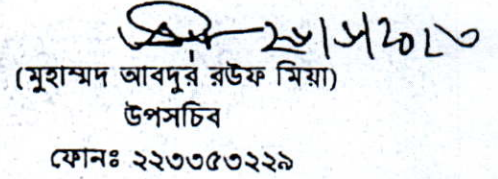 (মুহাম্মদ আবদুর রউফ মিয়া)
উপসচিব
ফোনঃ ২২৩৩৫৩২২৯